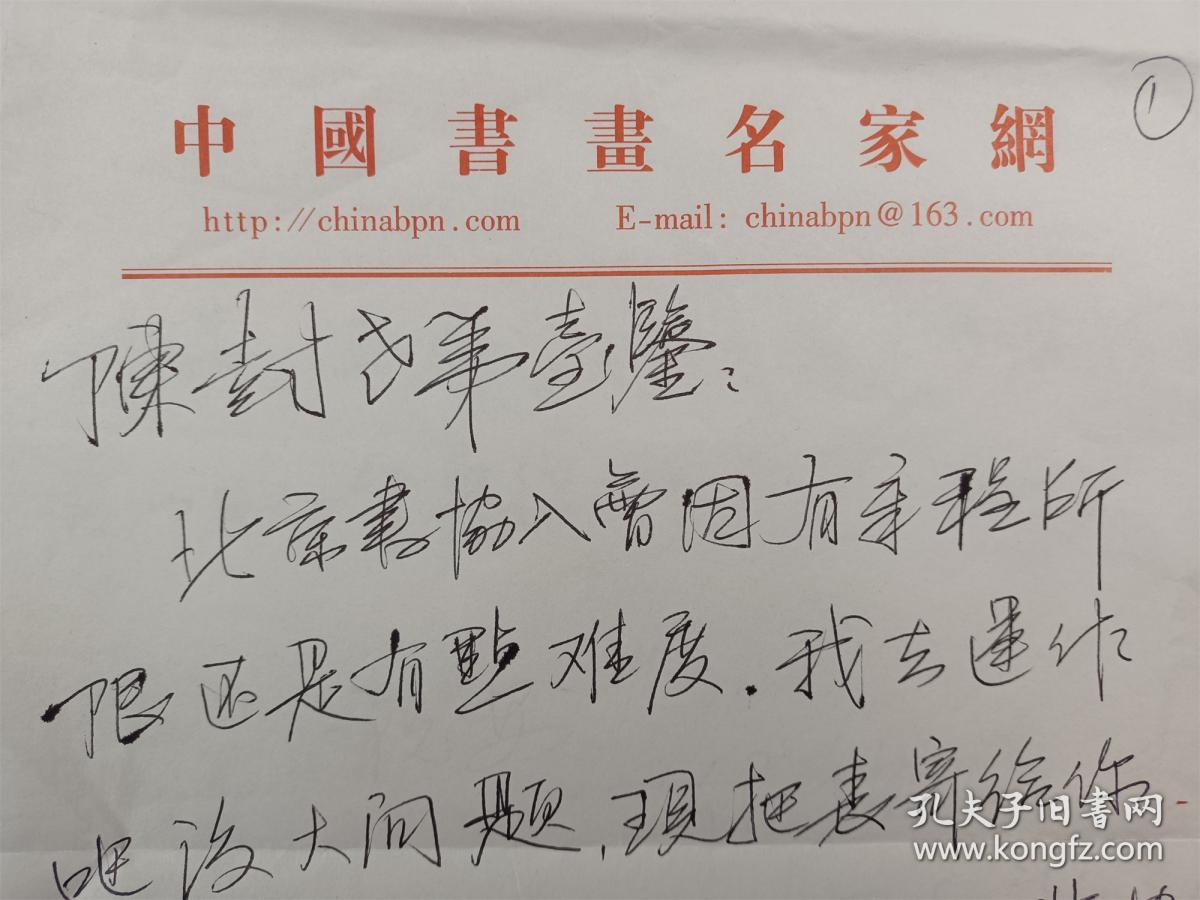 ①
中國書畫名家網
http://chinabpn.com E-mail: chinabpn@163.com
陳封 弟臺鑒:
北京書協入會因有章程所
限还是有點难度.我去運作
吧没大问题,現把表寄给你
孔夫子旧书网
www.kongfz.com